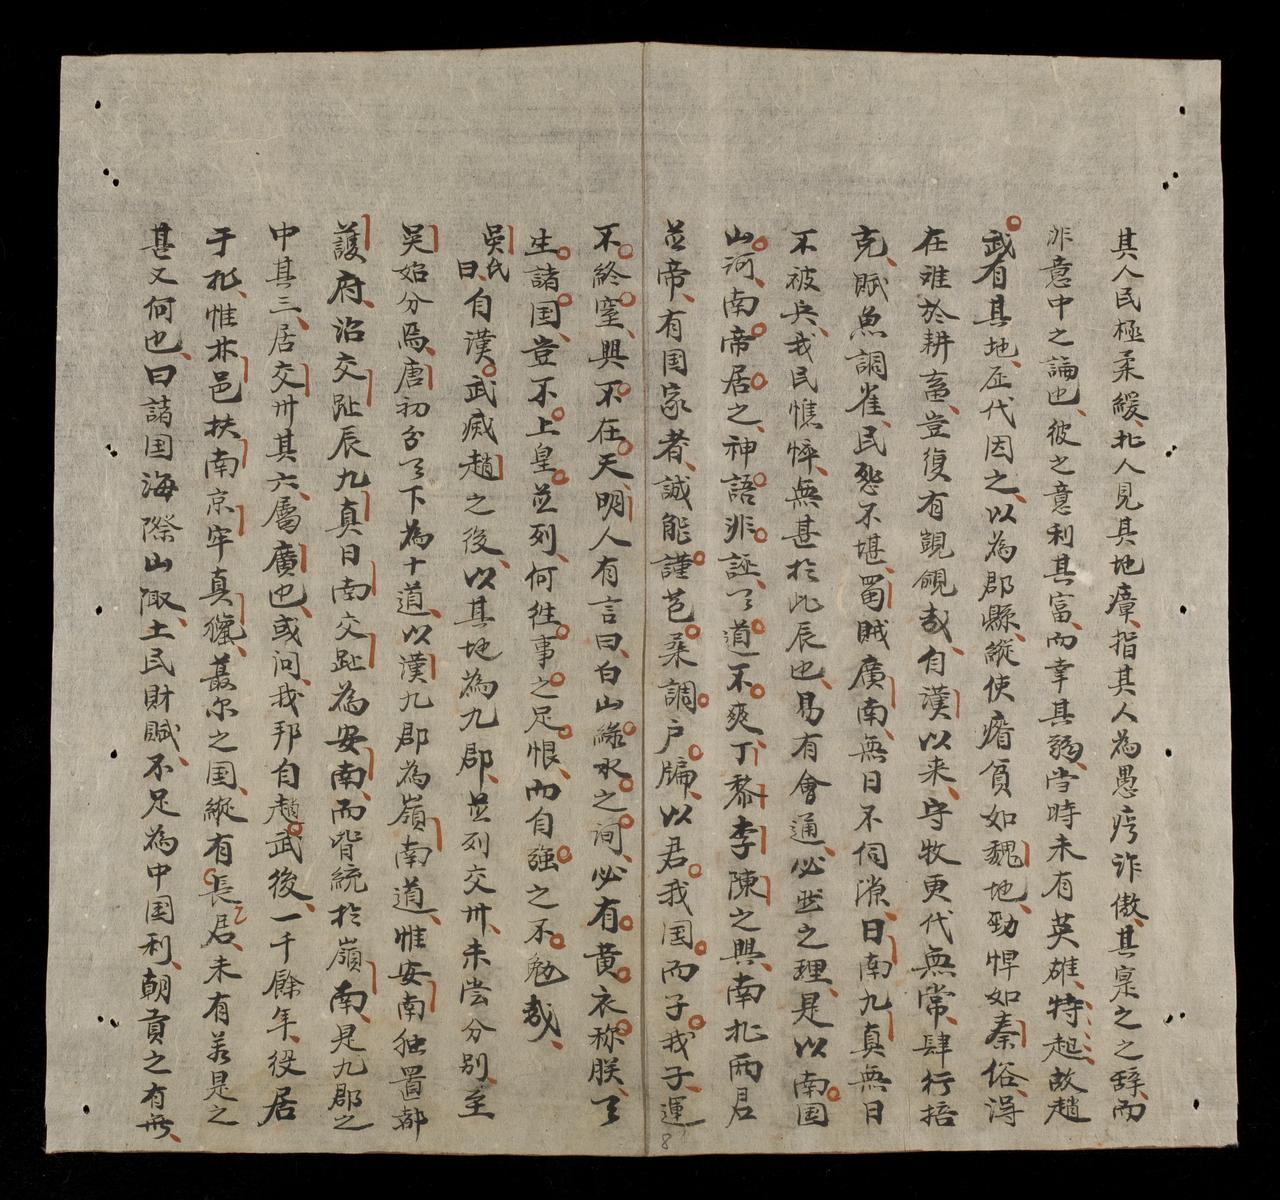 其人民極柔緩、北人見其地瘴、指其人為愚、污詐傲、其稟之之辞、而
非意中之論也、彼之意利其富、而幸其弱、当時未有英雄、特起、故趙
武有其地、歷代因之、以為郡縣、縱使瘠負如魏地、勁悍如秦俗、淂
在难於耕畜、豈復有覬覦哉、自漢以来、守牧更代無常、肆行掊
克、賦魚調雀、民愁不堪、蜀賊廣南、無日不伺隙、日南九真、無日
不被兵、我民憔悴、無甚於此辰也、易有會通、必然之理、是以南国
山河、南帝居之、神語非誣、天道不爽、丁黎李陳之興、南北兩君
並帝、有国家者、誠能謹苞桑、調户牖、以君我国、而子我子、運
不終窒、興不在天、明人有言曰、白山綠水之间、必有黄衣称朕、天
生諸国、豈不上皇並列、何徃事之足恨、而自強之不勉哉、
吳氏曰、自漢武威趙之後、以其地為九郡、並列交州、未尝分别、至
吴始分焉、唐初分天下為十道、以漢九郡為嶺南道、惟安南独置都
護府、治交趾、辰九真日南交趾為安南、而皆統於嶺南、是九郡之
中、其三居交州、其六屬廣也、或问、我邦自趙武後、一千餘年、役居
于北、惟林邑扶南京牢真獵、蕞尔之国、縱有長居、未有若是之
甚、又何也、曰諸国海際山陬、土民財賦、不足為中国利、朝貢之有無、
8